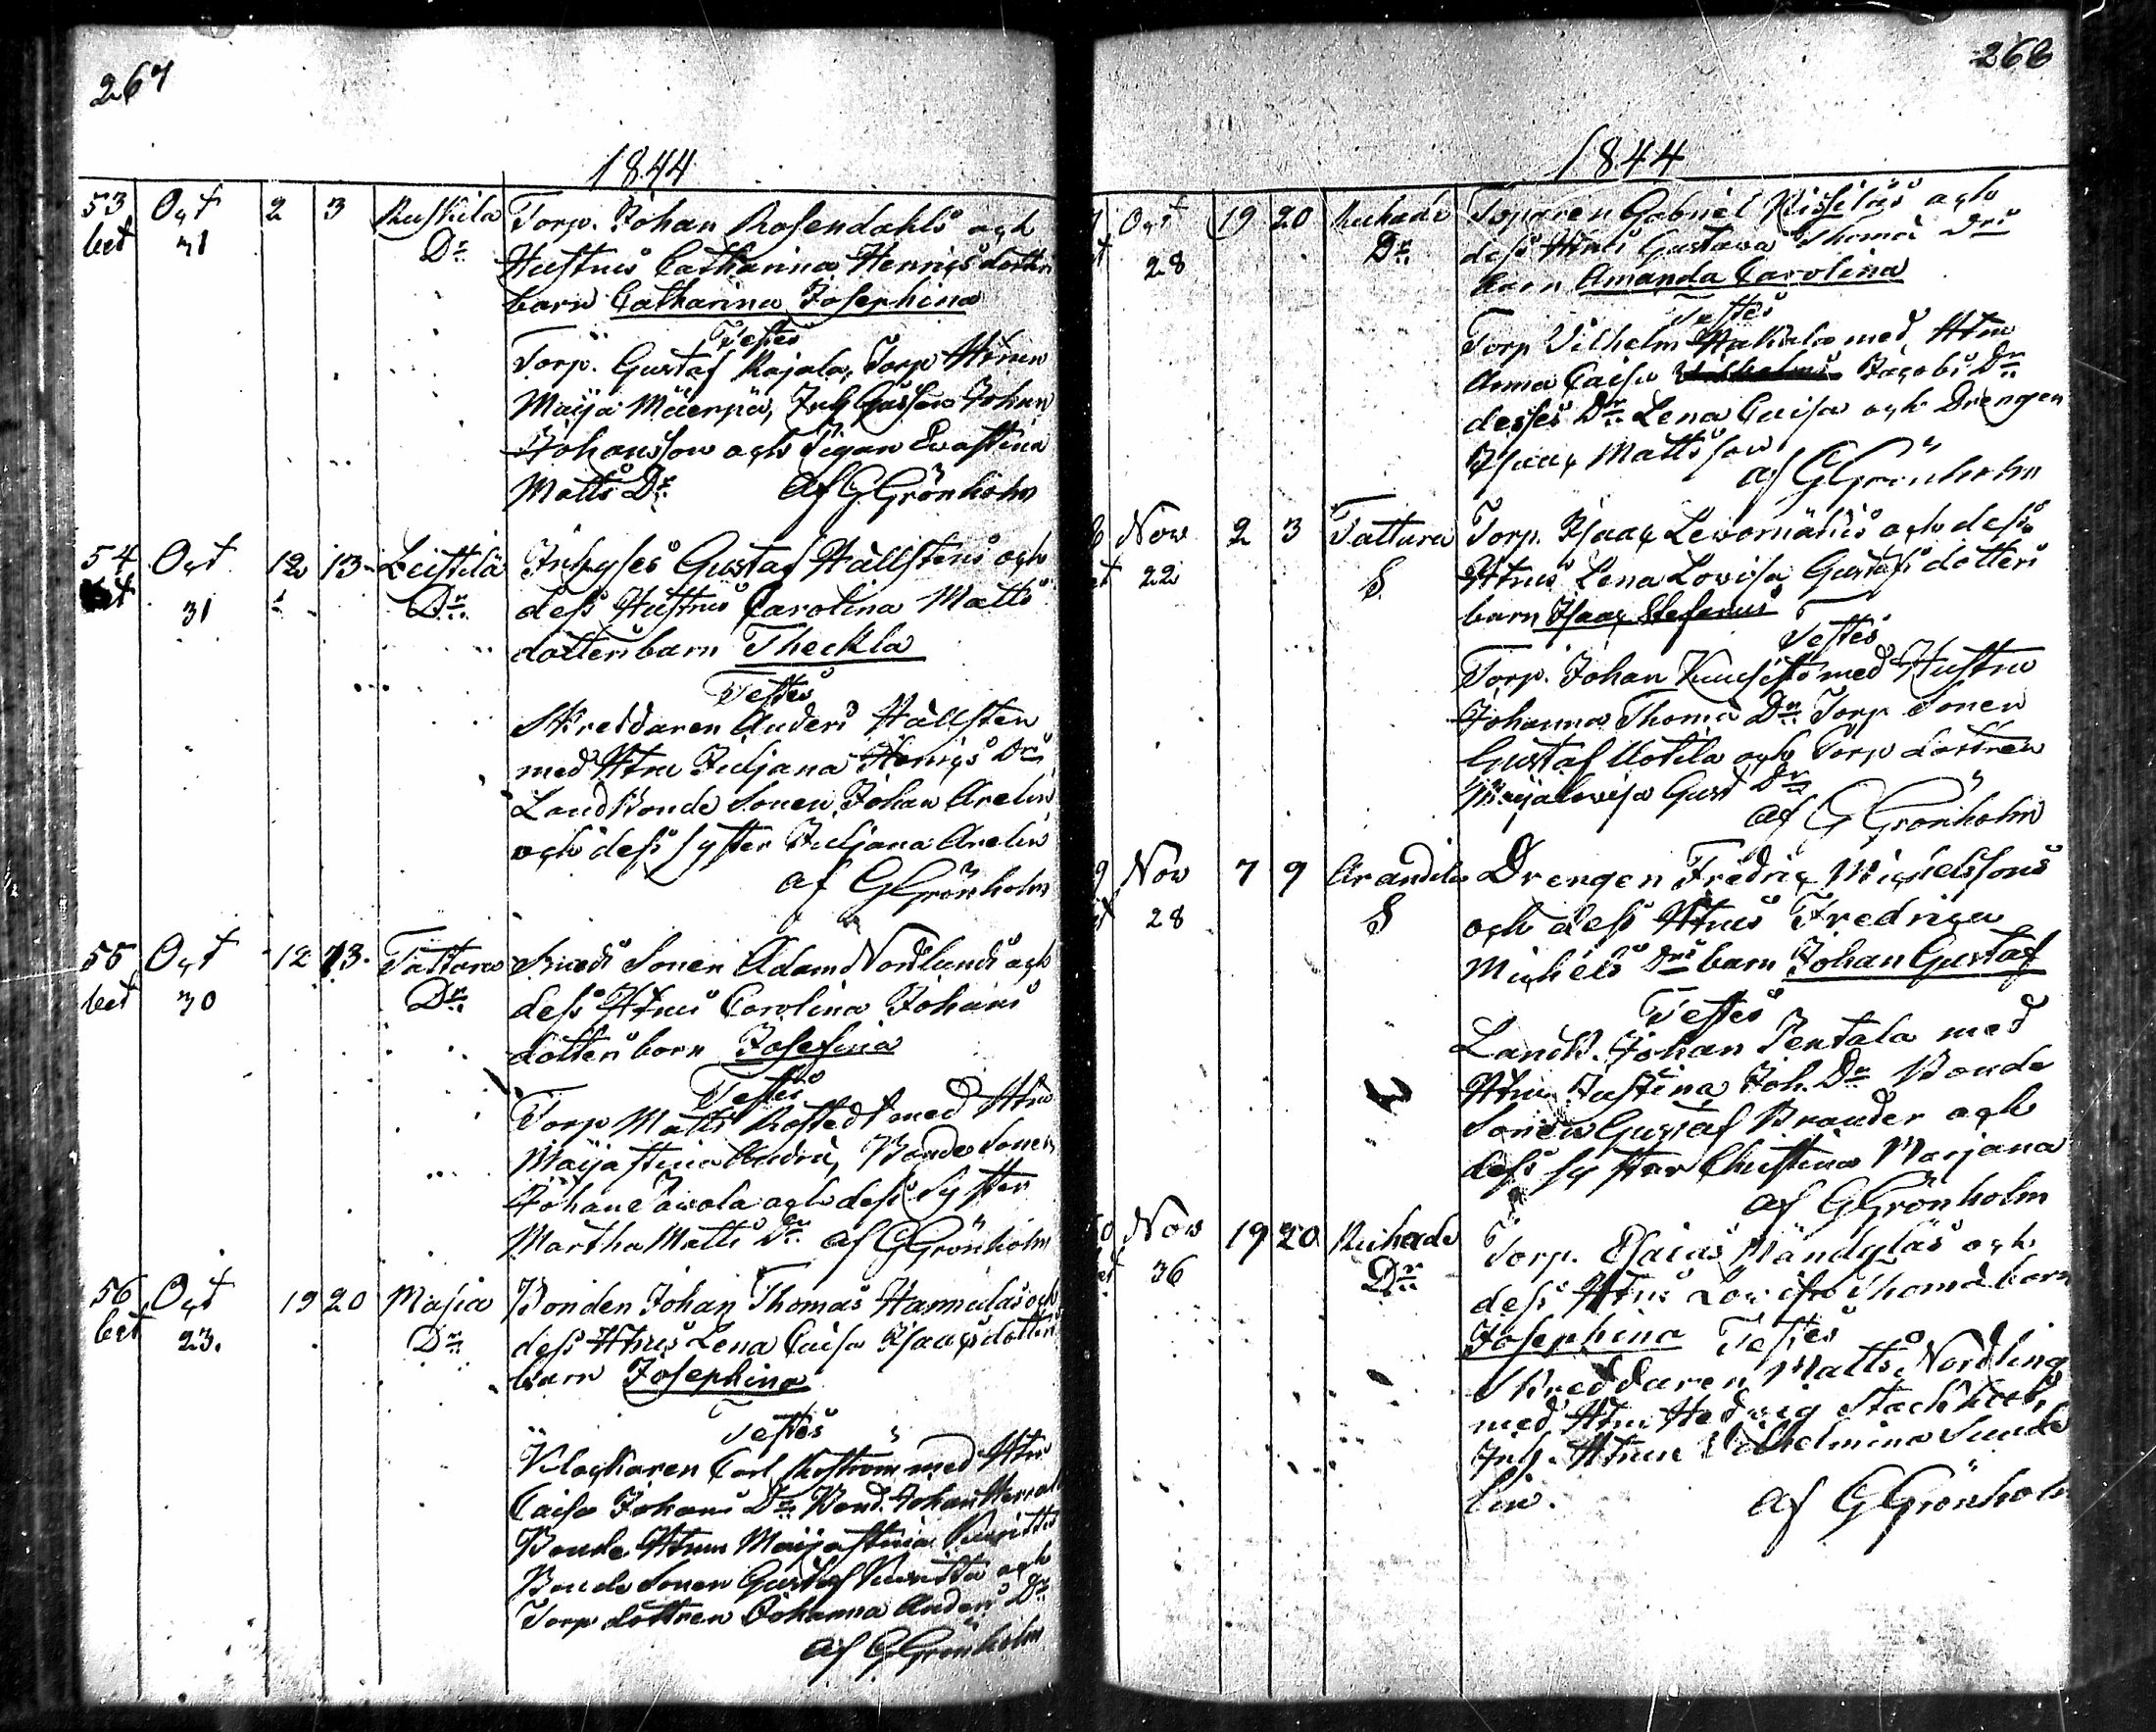 267
1844
53 Oct 2 3 Ruskila Torp. Johan Rosendahls och
bet 31 Dr Hustrus Catharina Henrigsdotters
barn Catharina Josephina
Testes
Torp. Gustaf Rajala, Torp Htrun
Maija Mäerpä, Johan
Johansson och Pigan Ewastina
Matts Dr af G Grönholm
54 Oct 12 13 Leistilä Inhyses Gustaf Hällstens och
bet 31 Dr dess Hustrus Carolina Matts
dotters barn Theckla
Testes
Skreddaren Anders Hällsten
med Htru Juljana Henrigs Dr
Landbonde Sonen Johan Arelin
och dess syster Juljana Arelin
af G Grönholm
55 Oct 12 13 Tattara Sonen Adam Nordlunds och
bet 30 Dr dess Htrus Carolina Johans
dotters barn Josefina
Testes
Torp Matts Rostedt med Htru
Maijastina, Bonde Sonen
Johan och dess Syster
Martha Matts Dr af G Grönholm
56 Oct 19 20 Masia Bonden Johan Thomas Hannulas och
bet 23. Dr dess Htrus Lena Caisa Isaacsdotters
barn Josephina
Testes
Klockaren Carl med Htru
Caisa Johans Dr Bond. Johan
Bonde Htrun Maijastina
Bonde Sonen Gustaf och
Torp dottren Johanna Anders Dr
af G Grönholm
268
1844
Oct 19 20 Ruhade Torparen Gabriel och
28 Dr dess Htrus Gustava Thomä Drs
barn Amanda Carolina
Testes
Torp Vilhelm med Htru
Anna Caisa Jacobs Dr
desses Dr Lena Caisa och Drengen
Isaac Mattsson
af G Grönholm
Nov 2 3 Tattara Torp. Isaac och dess
22 S Htrus Lena Lovisa Gustafsdotters
barn Isaac Stefanus
Testes
Torp. Johan Kuusisto med Hustru
Johanna Thomä Dr Torp Sonen
Gustaf Uotila och Torp dottren
Maijalovisa Gust Dr
af G Grönholm
Nov 7 9 Arandila Drengen Fredric Michelssons
28 S och dess Htrus Fredrica
Michels Drs barn Johan Gustaf
Testes
Landb. Johan Pentala med
Htru Justina Joh. Dr Bonde
Sonen Gustaf Brander och
dess syster Christina Marjana
af G Grönholm
Nov 19 20 Ruhade Torp. Esaias och
36 Dr dess Htrus Lovisa Thomä barn
Josephina Testes
Skreddaren Matts Nordling
med Htru Hedvig
Inh. Htrun Vilhelmina Sunde
lin. af G Grönholm